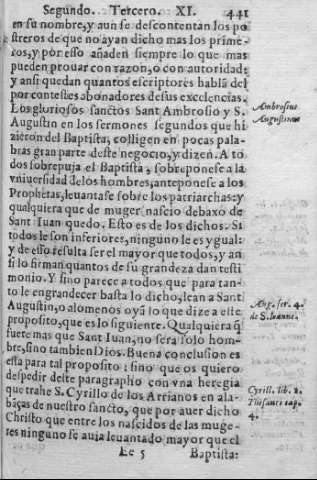 Segundo. Tercero. XI. 441
en su nombre, y aun se descontentan los po
streros de que no ayan dicho mas los prime-
ros, y por esso añaden siempre lo que mas
pueden prouar con razon, o con autoridad:
y ansi quedan quantos escriptores hablã del
por contestes abonadores de sus excelencias.
Los gloriosos sanctos Sant Ambrosio y S.
Augustin en los sermones segundos que hi
zieron del Baptista, colligen en pocas pala-
bras gran parte deste negocio, y dizen. A to
dos sobrepuja el Baptista, sobreponese a la
vniuersidad de los hombres, anteponese a los
Prophetas, leuantase sobre los patriarchas: y
qualquiera que de muger nascio debaxo de
Sant Iuan quedo. Esto es de los dichos. Si
todos le son inferiores, ninguno le es ygual:
y de esso resulta ser el mayor que todos, y an
si lo firman quantos de su grandeza dan testi
monio. Y sino parece a todos que para tan-
to le engrandecer basta lo dicho, lean a Sant
Augustin, o alomenos oyã lo que dize a este
proposito, que es lo siguiente. Qualquiera q̃
fuere mas que Sant Iuan, no sera solo hom-
bre, sino tambien Dios. Buena conclusion es
esta para tal proposito: sino que os quiero
despedir deste paragrapho con vna heregia
que trahe S. Cyrillo de los Arrianos en ala-
bãças de nuestro sancto, que por auer dicho
Christo que entre los nascidos de las muge-
res ninguno se auia leuantado mayor que el
Ee 5 Baptista:
Ambrosius
Augustinus
Aug. ser. 4.
de S. Ioanne.
Cyrill. lib. 2.
Thesauri cap.
4.